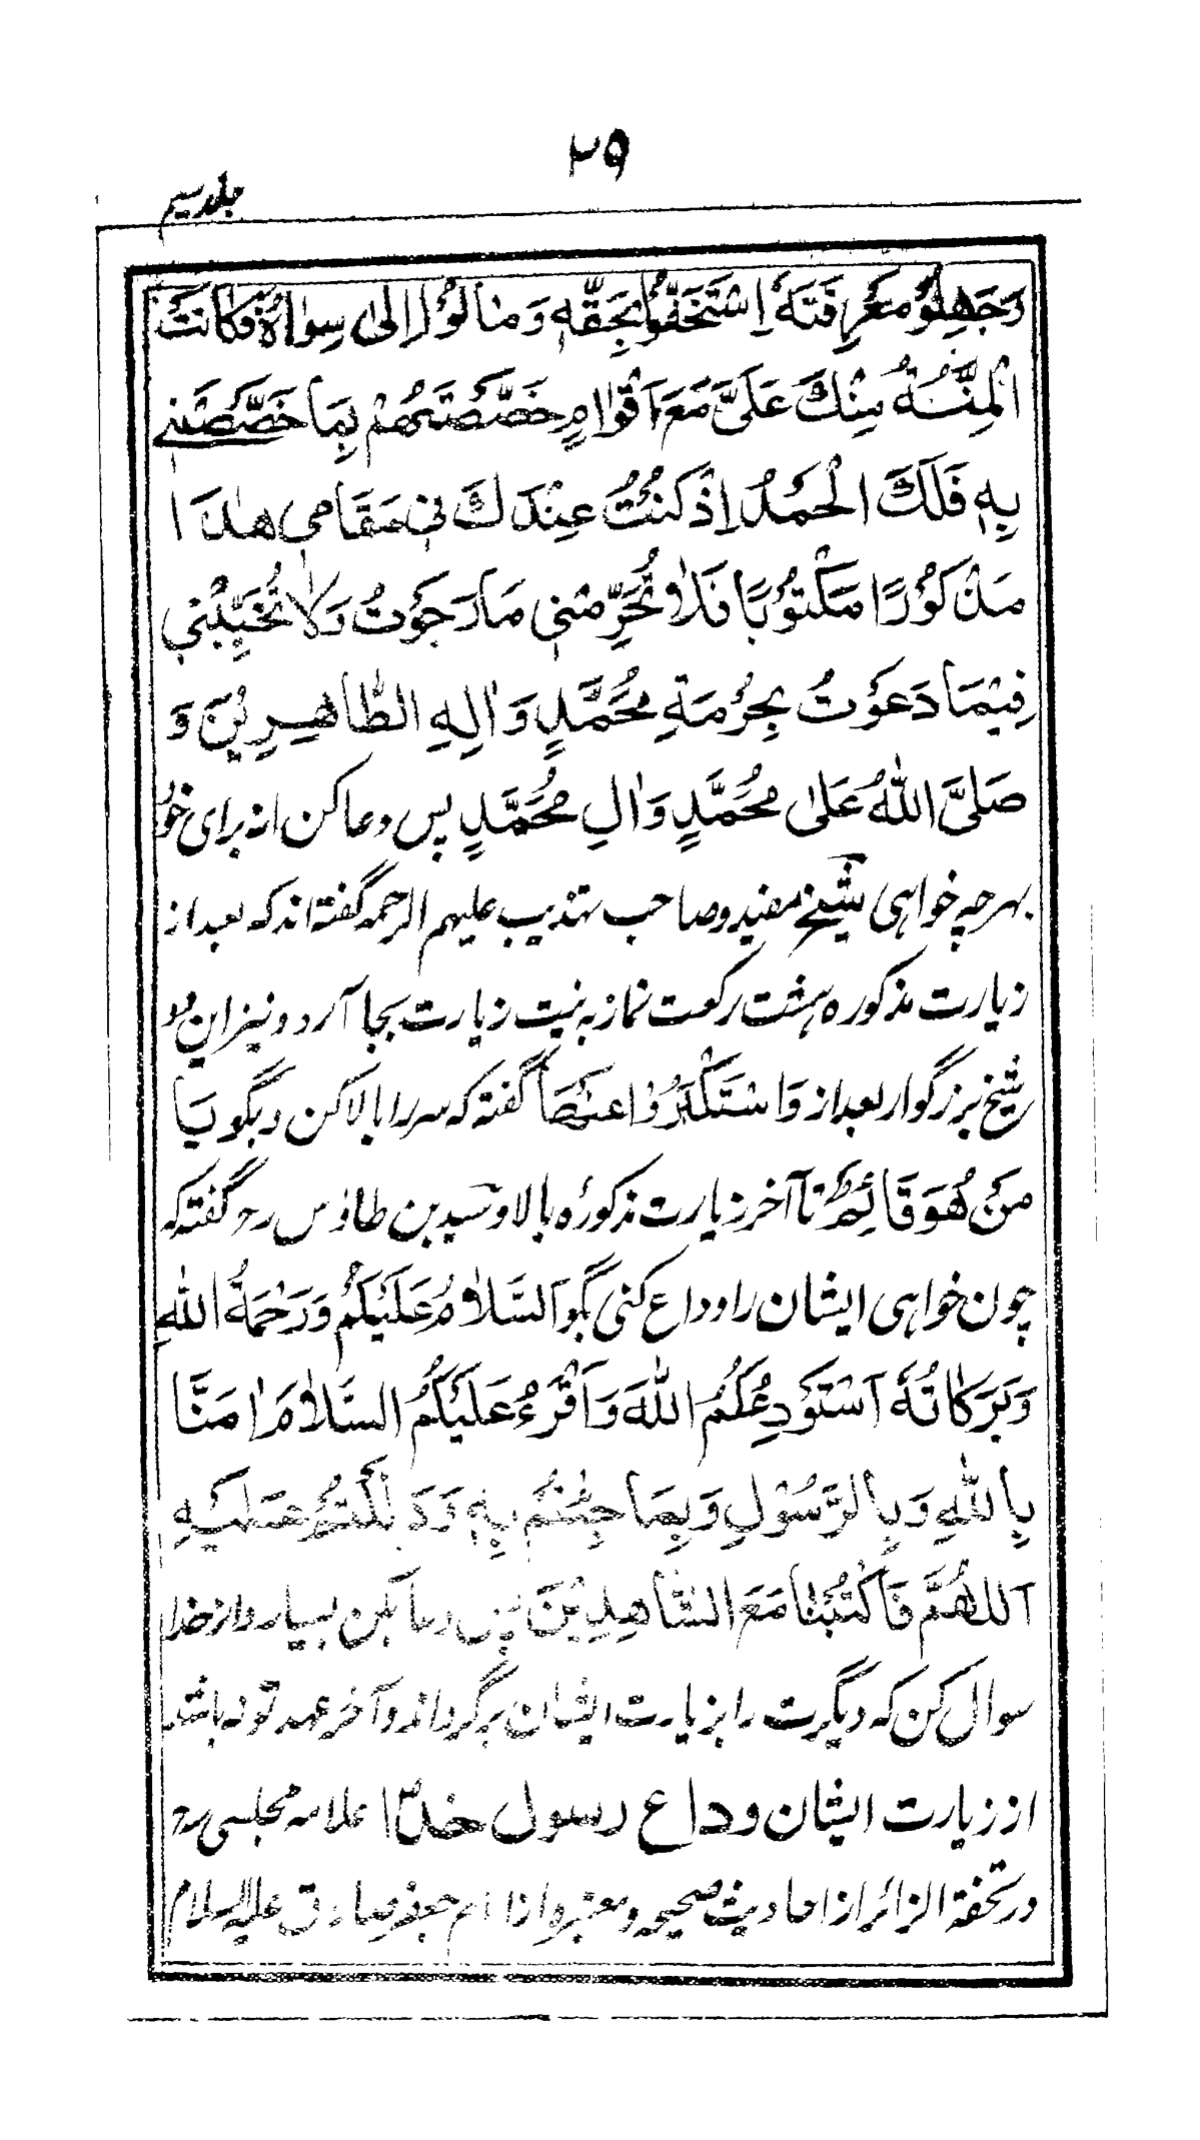 ۲۹
جلد سیم
وَجَهِلُوْ مَعْرِفَتَهٗ اِسْتَخَفُّوْا بِحَقِّهٖ وَمَالُوْا اِلٰی سِوَاهُ فَكَانَتْ
الْمِنَّةُ مِنْكَ عَلَيَّ مَعَ اَقْوَامٍ خَصَّصْتَهُمْ بِمَا خَصَّصْتَنِیْ
بِهٖ فَلَكَ الْحَمْدُ اِذْ كُنْتُ عِنْدَكَ فِیْ مَقَامِی هٰذَا
مَذْكُوْرًا مَكْتُوْبًا فَلَا تُحَرِّمْنِی مَا رَجَوْتُ وَلَا تُخَيِّبْنِی
فِيْمَا دَعَوْتُ بِحُرْمَةِ مُحَمَّدٍ وَاٰلِهِ الطَّاهِرِيْنَ وَ
صَلَّی اللّٰهُ عَلٰی مُحَمَّدٍ وَاٰلِ مُحَمَّدٍ پس دعا کن از برای خود
بهرچه خواهی شیخ مفید و صاحب تهذیب علیهم الرحمه گفته اند که بعد از
زیارت مذکوره هشت رکعت نماز به نیت زیارت بجا آرد و نیز این دو
شیخ بزرگوار بعد از وَاسْتَكْبَرُوْا عَنْهَا گفته که سر را بالا کن و بگو یَا
مَنْ هُوَ قَائِمٌ تا آخر زیارت مذکورهٔ بالا و سید بن طاؤس رح گفته که
چون خواهی ایشان را وداع کنی بگو اَلسَّلَامُ عَلَيْكُمْ وَرَحْمَةُ اللّٰهِ
وَبَرَكَاتُهٗ اَسْتَوْدِعُكُمُ اللّٰهَ وَاَقْرَءُ عَلَيْكُمُ السَّلَامَ اٰمَنَّا
بِاللّٰهِ وَبِالرَّسُوْلِ وَبِمَا جِئْتُمْ بِهٖ وَدَلَلْتُمْ عَلَيْهِ
اَللّٰهُمَّ فَاكْتُبْنَا مَعَ الشَّاهِدِيْنَ پس دعا بکن بسیار و از خدا
سوال کن که دیگرت را بزیارت ایشان برگرداند و آخر عهد تو نه باشد
از زیارت ایشان وداع رسول خداؐ علامه مجلسی رح
در تحفة الزائر از احادیث صحیحه و معتبره از امام جعفر صادق علیه السلام